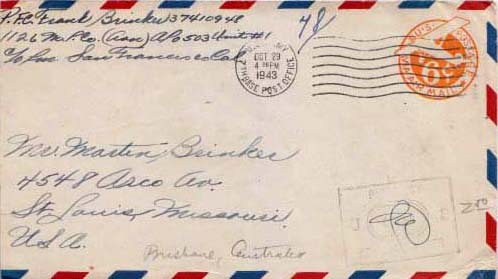 Pfc Frank Brinker 37410948
1126 M.P. Co. (Avn) APO 503 Unit #1
C/o Pm. San Francisco Cal
U.S. ARMY
OCT 29
4 PM
1943
7TH BASE POST OFFICE
U.S. POSTAGE
6¢
VIA AIR MAIL
Mr. Martin Brinker
4548 Arco Av.
St. Louis, Missouri.
U.S.A.
Brisbane, Australia